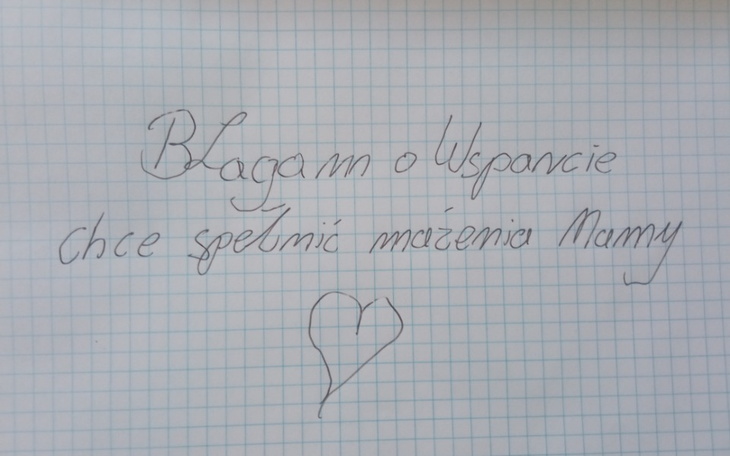 BŁagam o Wsparcie
chce spełnić mażenia Mamy